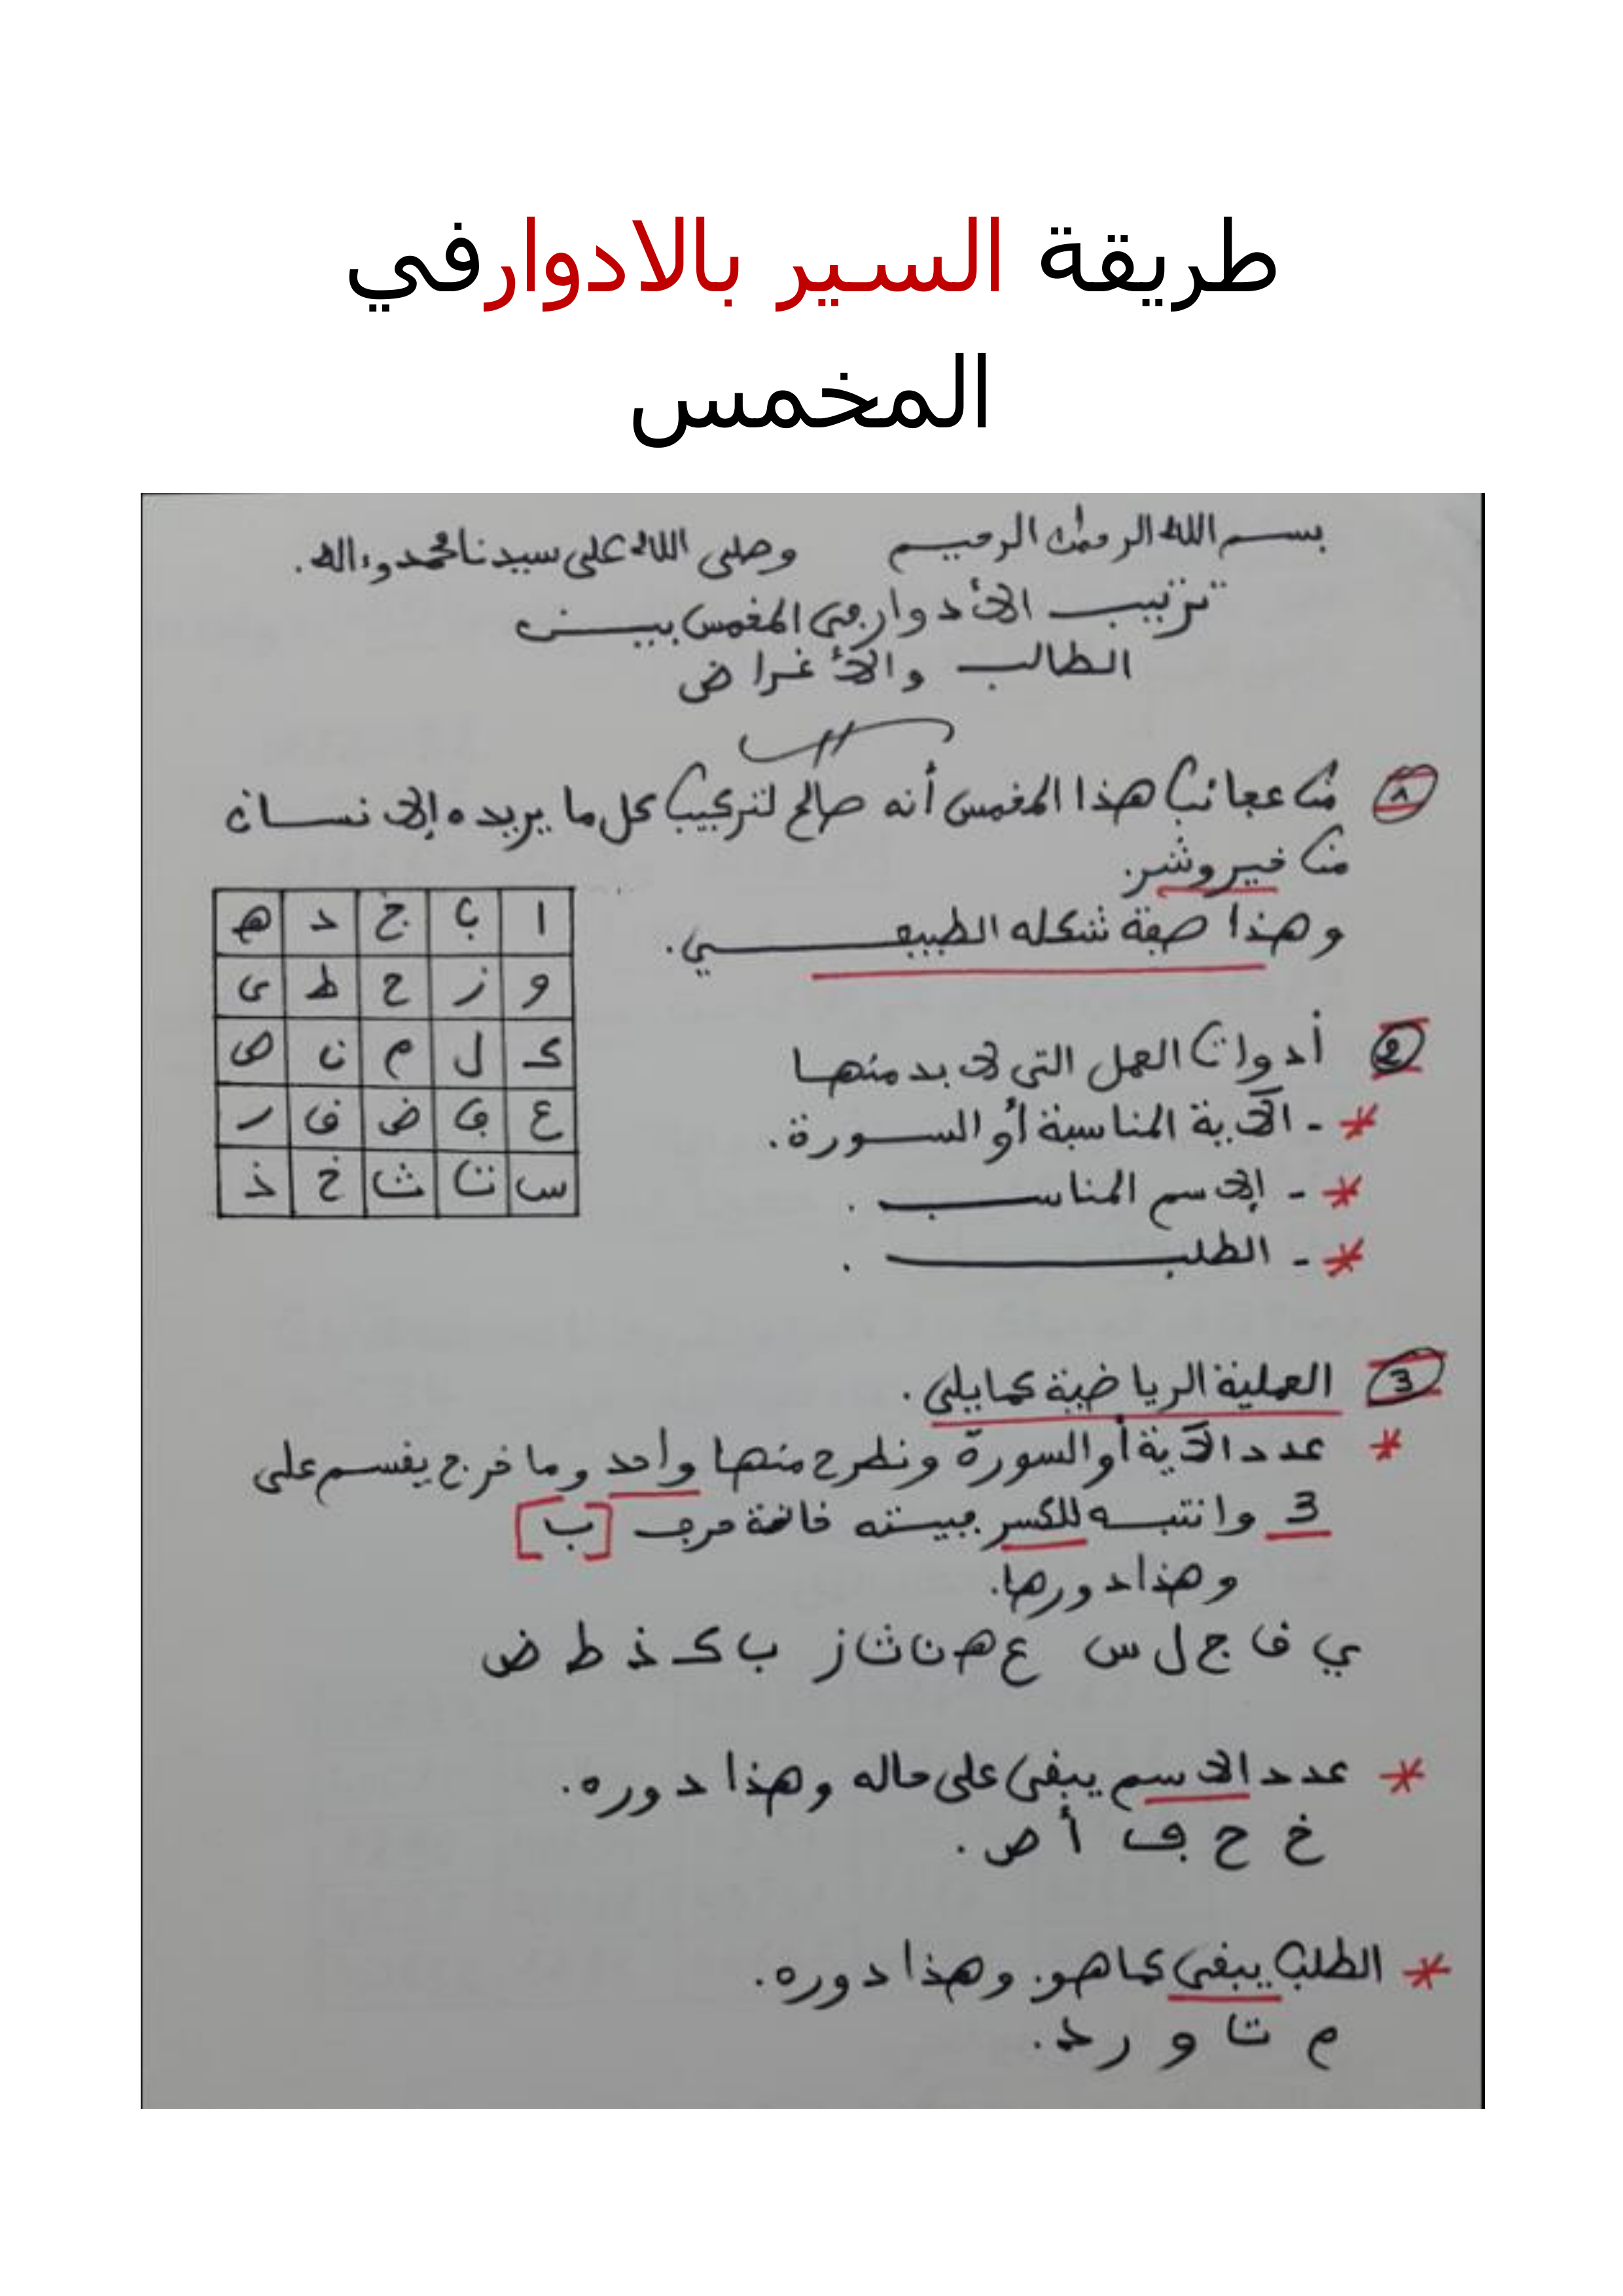 طريقة السير بالادوارفي
المخمس
بسم الله الرحمان الرحيم وصلى الله على سيدنا محمد وءاله.
ترتيب الأدوار في المخمس بين
الطالب والأغراض
1 من عجائب هذا المخمس أنه صالح لتركيب كل ما يريده الإنسان
من خير وشر.
وهذا صفة شكله الطبيعي.
ا ب ج د ه
و ز ح ط ى
ك ل م ن ص
ع ف ض ق ر
س ت ث خ ذ
2 أدوات العمل التي لا بد منها
* - الآية المناسبة أو السورة.
* - الإسم المناسب.
* - الطلب.
3 العملية الرياضية كما يلي.
* عدد الآية أو السورة ونطرح منها واحد وما خرج يقسم على
3 وانتبه للكسر فبيته خانة حرف [ب]
وهذا دورها.
ي ق ج ل س ع ه ن ث ز ب ك ذ ط ض
* عدد الاسم يبقى على حاله وهذا دوره.
خ ح ف أ ص.
* الطلب يبقى كما هو. وهذا دوره.
م ت و ر د.